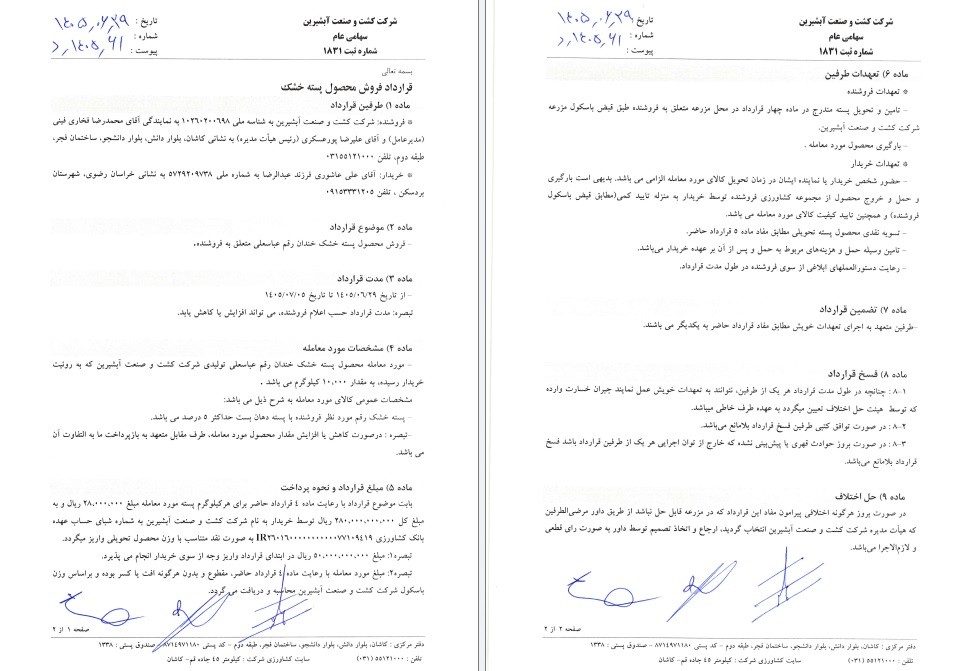 شرکت کشت و صنعت آبشیرین
سهامی عام
شماره ثبت ۱۸۳۱
تاریخ : ۱۴۰۵,۰۶,۲۹
شماره : ۱۴۰۵,۶۱
پیوست :
بسمه تعالی
قرارداد فروش محصول پسته خشک
ماده ۱) طرفین قرارداد
* فروشنده: شرکت کشت و صنعت آبشیرین به شناسه ملی ۱۰۲۶۰۲۰۰۶۹۸ به نمایندگی آقای محمدرضا فخاری فینی
(مدیرعامل) و آقای علیرضا پورعسکری (رئیس هیأت مدیره) به نشانی کاشان، بلوار دانش، بلوار دانشجو، ساختمان فجر،
طبقه دوم، تلفن ۰۳۱۵۵۱۲۱۰۰۰
* خریدار: آقای علی عاشوری فرزند عبدالرضا به شماره ملی ۵۷۲۹۲۰۹۷۳۸ به نشانی خراسان رضوی، شهرستان
بردسکن ، تلفن ۰۹۱۵۳۳۳۱۲۰۵
ماده ۲) موضوع قرارداد
- فروش محصول پسته خشک خندان رقم عباسعلی متعلق به فروشنده.
ماده ۳) مدت قرارداد
- از تاریخ ۱۴۰۵/۰۶/۲۹ تا تاریخ ۱۴۰۵/۰۷/۰۵
تبصره: مدت قرارداد حسب اعلام فروشنده، می تواند افزایش یا کاهش یابد.
ماده ۴) مشخصات مورد معامله
- مورد معامله محصول پسته خشک خندان رقم عباسعلی تولیدی شرکت کشت و صنعت آبشیرین که به رونیت
خریدار رسیده، به مقدار ۱۰,۰۰۰ کیلوگرم می باشد .
مشخصات عمومی کالای مورد معامله به شرح ذیل می باشد:
- پسته خشک رقم مورد نظر فروشنده با پسته دهان بست حداکثر ۵ درصد می باشد.
-تبصره : درصورت کاهش یا افزایش مقدار محصول مورد معامله، طرف مقابل متعهد به بازپرداخت ما به التفاوت آن
می باشد.
ماده ۵) مبلغ قرارداد و نحوه پرداخت
بابت موضوع قرارداد با رعایت ماده ۴ قرارداد حاضر برای هرکیلوگرم پسته مورد معامله مبلغ ۲۸,۰۰۰,۰۰۰ ریال و به
مبلغ کل ۲۸۰,۰۰۰,۰۰۰,۰۰۰ ریال توسط خریدار به نام شرکت کشت و صنعت آبشیرین به شماره شبای حساب عهده
بانک کشاورزی به صورت نقد متناسب با وزن محصول تحویلی واریز میگردد.
تبصره۱: مبلغ ۵۰,۰۰۰,۰۰۰,۰۰۰ ریال در ابتدای قرارداد واریز وجه از سوی خریدار انجام می پذیرد.
تبصره۲: مبلغ مورد معامله با رعایت ماده ۴ قرارداد حاضر، مقطوع و بدون هرگونه افت یا کسر بوده و براساس وزن
باسکول شرکت کشت و صنعت آبشیرین محاسبه و دریافت می گردد.
صفحه ۱ از ۲
دفتر مرکزی : کاشان، بلوار دانش، بلوار دانشجو، ساختمان فجر، طبقه دوم - کد پستی ۸۷۱۴۹۷۱۱۸۰ - صندوق پستی : ۱۳۳۸
تلفن : ۵۵۱۲۱۰۰۰ (۰۳۱) سایت کشاورزی شرکت : کیلومتر ۴۵ جاده قم- کاشان
شرکت کشت و صنعت آبشیرین
سهامی عام
شماره ثبت ۱۸۳۱
تاریخ : ۱۴۰۵,۰۶,۲۹
شماره : ۱۴۰۵,۶۱
پیوست :
ماده ۶) تعهدات طرفین
* تعهدات فروشنده
- تامین و تحویل پسته مندرج در ماده چهار قرارداد در محل مزرعه متعلق به فروشنده طبق قبض باسکول مزرعه
شرکت کشت و صنعت آبشیرین.
- بارگیری محصول مورد معامله .
* تعهدات خریدار
- حضور شخص خریدار یا نماینده ایشان در زمان تحویل کالای مورد معامله الزامی می باشد. بدیهی است بارگیری
و حمل و خروج محصول از مجموعه کشاورزی فروشنده توسط خریدار به منزله تایید کمی(مطابق قبض باسکول
فروشنده) و همچنین تایید کیفیت کالای مورد معامله می باشد.
- تسویه نقدی محصول پسته تحویلی مطابق مفاد ماده ۵ قرارداد حاضر.
- تامین وسیله حمل و هزینه‌های مربوط به حمل و پس از آن بر عهده خریدار می‌باشد.
- رعایت دستورالعملهای ابلاغی از سوی فروشنده در طول مدت قرارداد.
ماده ۷) تضمین قرارداد
-طرفین متعهد به اجرای تعهدات خویش مطابق مفاد قرارداد حاضر به یکدیگر می باشند.
ماده ۸) فسخ قرارداد
۸-۱ : چنانچه در طول مدت قرارداد هر یک از طرفین، نتوانند به تعهدات خویش عمل نمایند جبران خسارت وارده
که توسط هیئت حل اختلاف تعیین میگردد به عهده طرف خاطی میباشد.
۸-۲ : در صورت توافق کتبی طرفین فسخ قرارداد بلامانع می‌باشد.
۸-۳ : در صورت بروز حوادث قهری یا پیش‌بینی نشده که خارج از توان اجرایی هر یک از طرفین قرارداد باشد فسخ
قرارداد بلامانع می‌باشد.
ماده ۹) حل اختلاف
در صورت بروز هرگونه اختلافی پیرامون مفاد این قرارداد که در مزرعه قابل حل نباشد از طریق داور مرضی‌الطرفین
که هیأت مدیره شرکت کشت و صنعت آبشیرین انتخاب گردید، ارجاع و اتخاذ تصمیم توسط داور به صورت رای قطعی
و لازم‌الاجرا می‌باشد.
صفحه ۲ از ۲
دفتر مرکزی : کاشان، بلوار دانش، بلوار دانشجو، ساختمان فجر، طبقه دوم - کد پستی ۸۷۱۴۹۷۱۱۸۰ - صندوق پستی : ۱۳۳۸
تلفن : ۵۵۱۲۱۰۰۰ (۰۳۱) سایت کشاورزی شرکت : کیلومتر ۴۵ جاده قم- کاشان